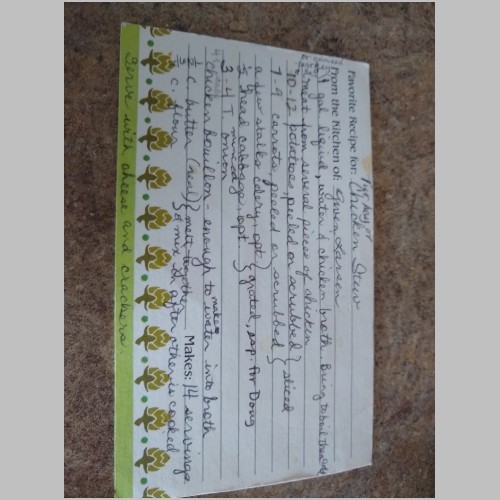 Favorite Recipe for: Turkey or Chicken Stew
From the Kitchen of: Gwen Larsen
gal liquid, water & chicken broth. Bring to boil then add
meat from several pieces of chicken
10-12 potatoes, peeled or scrubbed } sliced
7-9 carrots, peeled or scrubbed }
a few stalks celery, opt. } grated, esp. for Doug
1/2 head cabbage, opt }
3-4 T minced onion
chicken bouillon - enough to make water into broth
1/3 c. butter (real) } melt together Makes: 14 servings
1/3 c. flour } & mix in after other is cooked
Serve with cheese and crackers.